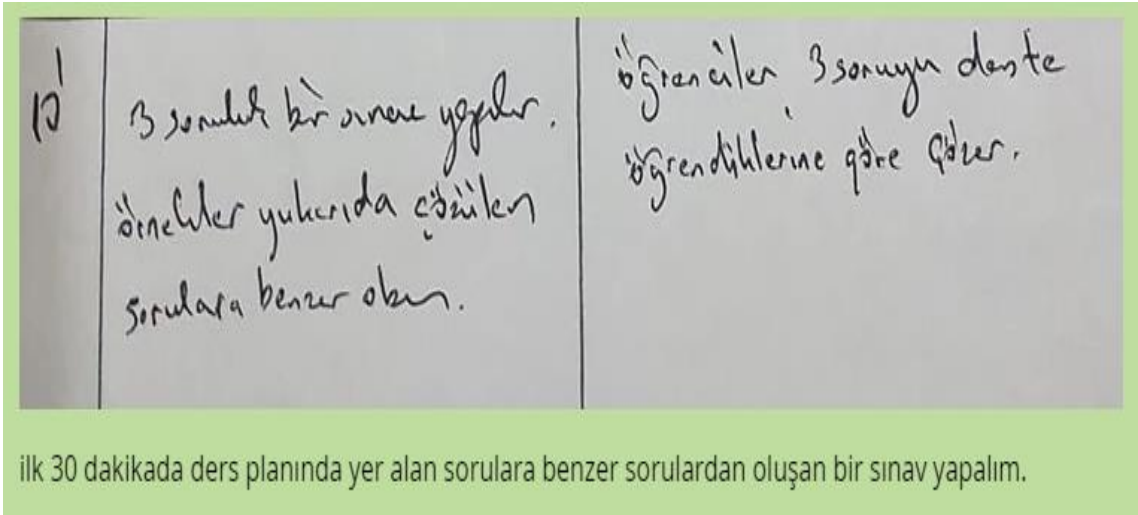 10'
3 soruluk bir sınav yapılır.
örnekler yukarıda çözülen
sorulara benzer olsun.
öğrenciler 3 soruyu derste
öğrendiklerine göre çözer.
ilk 30 dakikada ders planında yer alan sorulara benzer sorulardan oluşan bir sınav yapalım.